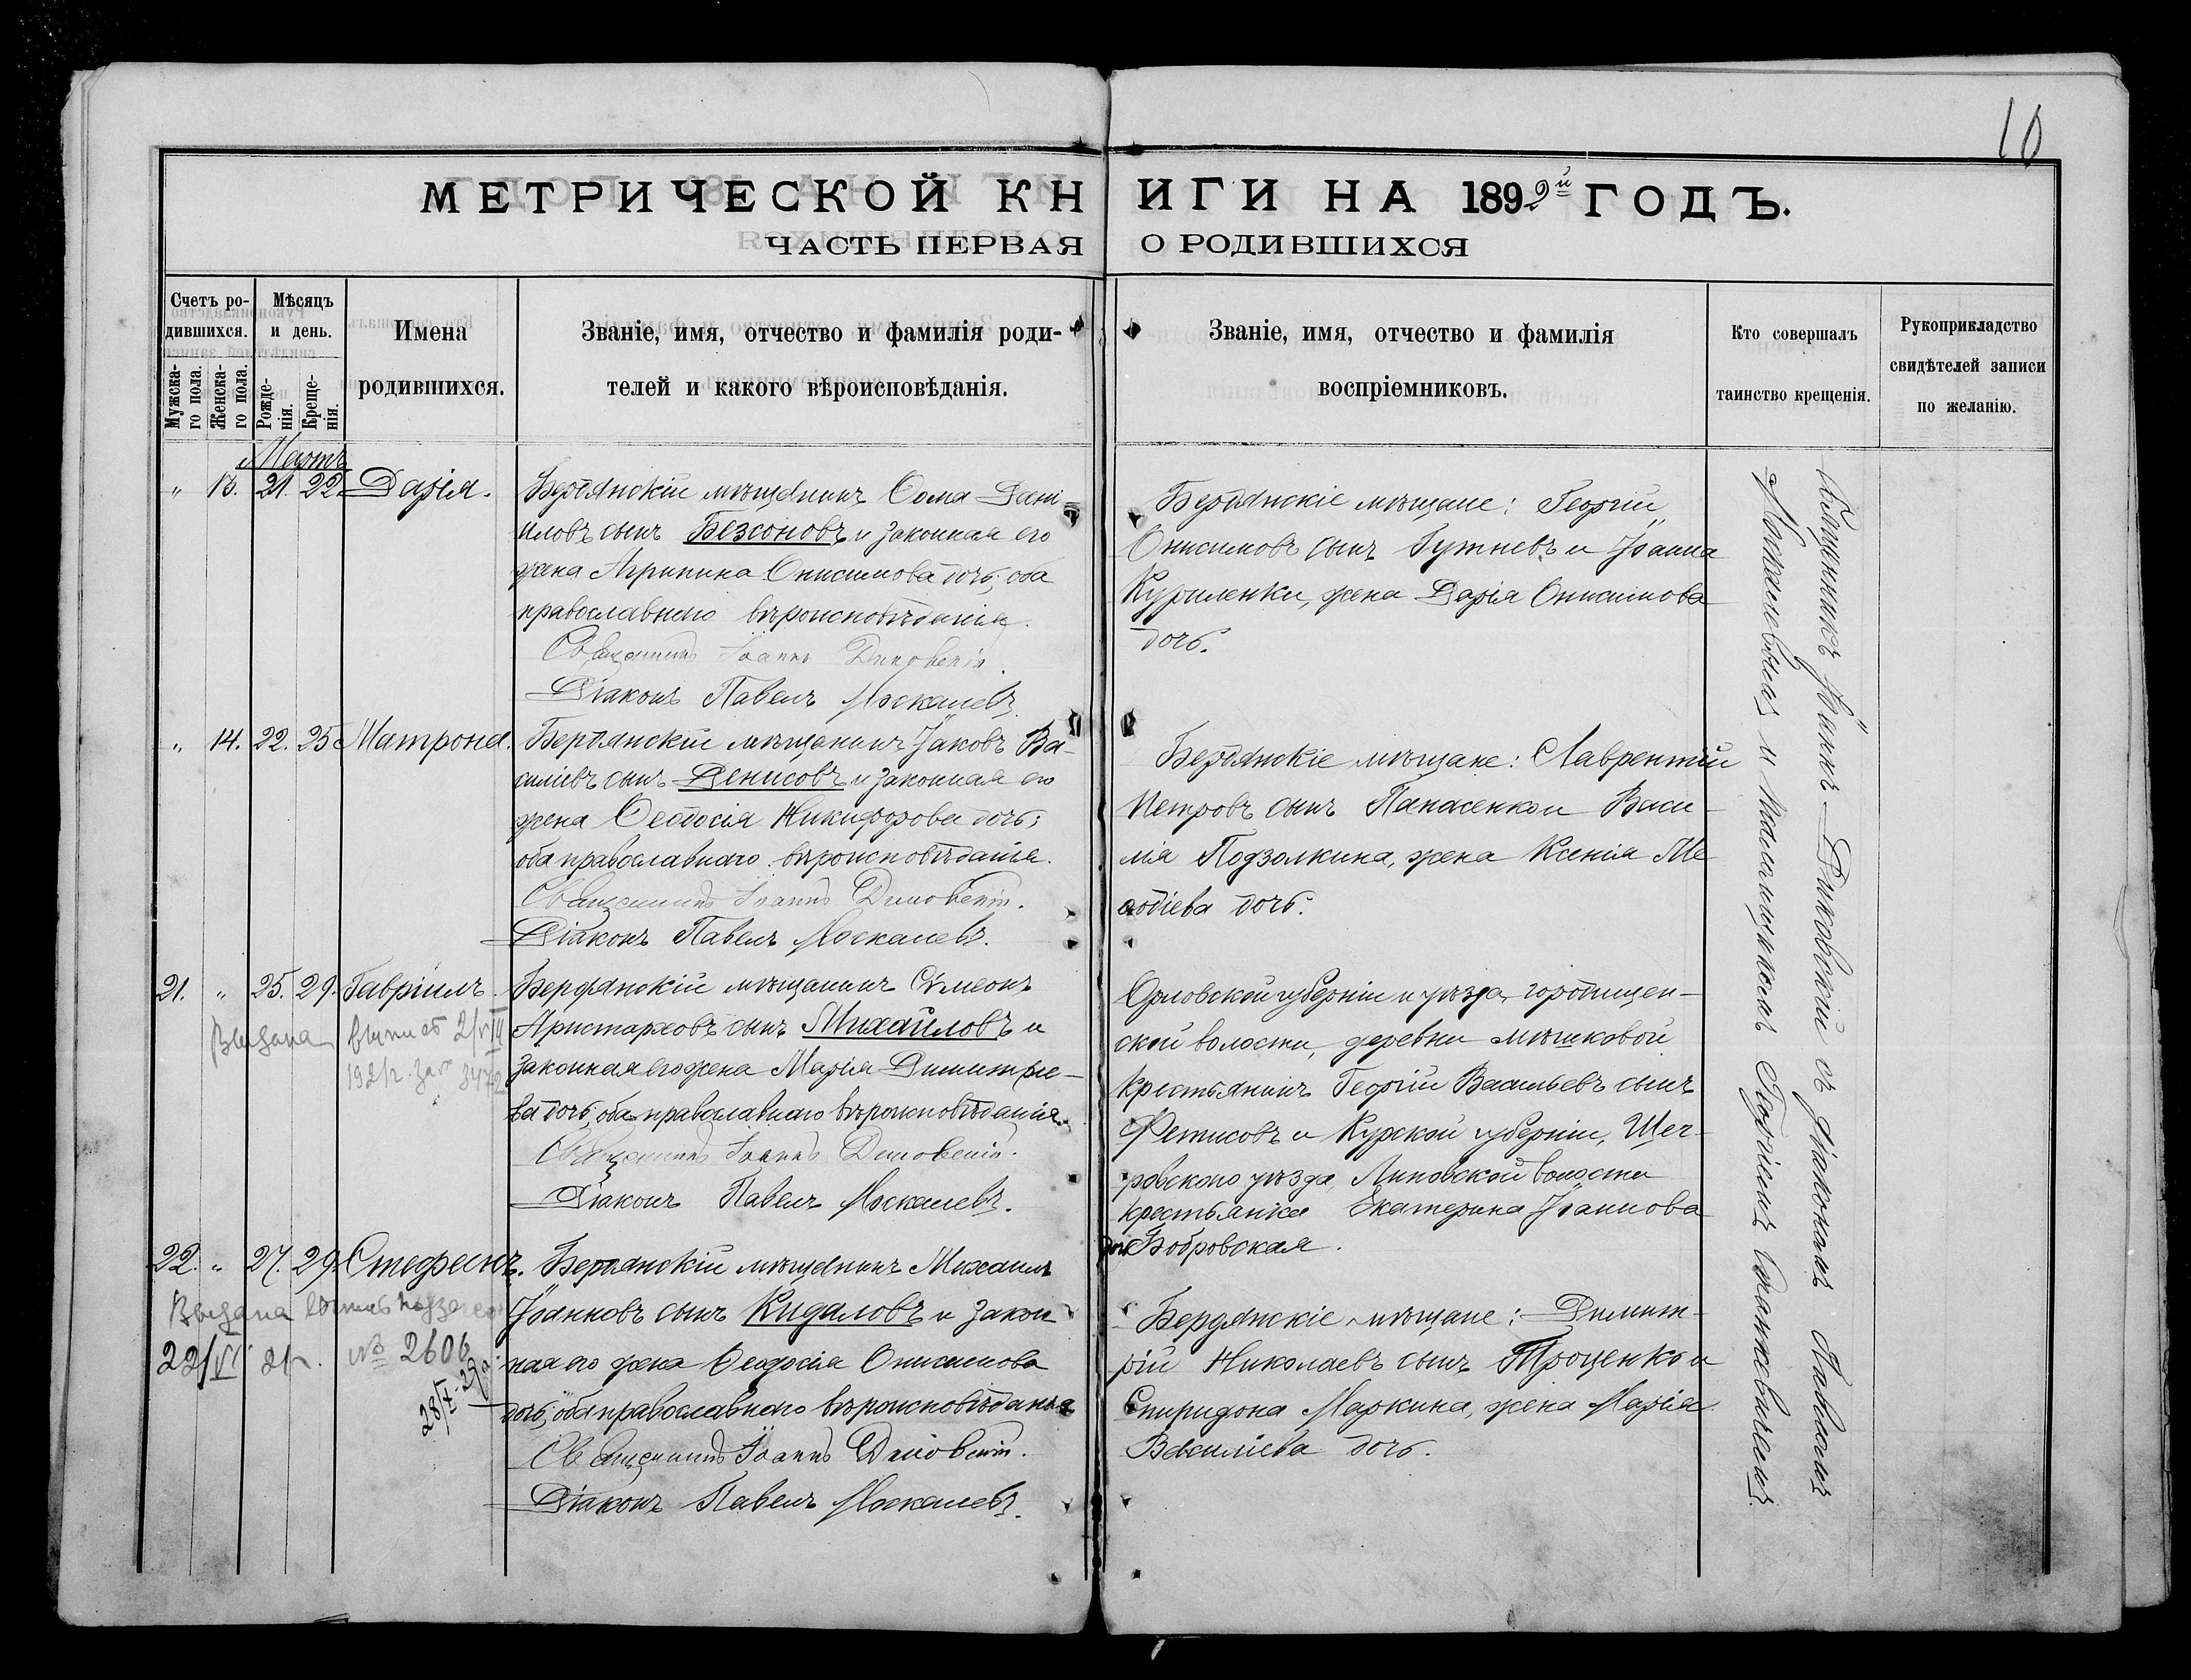 10
МЕТРИЧЕСКОЙ КНИГИ НА 1899й ГОДЪ.
ЧАСТЬ ПЕРВАЯ О РОДИВШИХСЯ
Счетъ ро-
дившихся.
Мужска-
го пола.
Женска-
го пола.
Мѣсяцъ
и день.
Рожде-
нія.
Креще-
нія.
Имена
родившихся.
Званіе, имя, отчество и фамилія роди-
телей и какого вѣроисповѣданія.
Званіе, имя, отчество и фамилія
воспріемниковъ.
Кто совершалъ
таинство крещенія.
Рукоприкладство
свидѣтелей записи
по желанію.
Мартъ
" 13. 21. 22. Дарія.
Бердянскій мѣщанинъ Ѳома Дані=
иловъ сынъ Безсоновъ и законная его
жена Агрипина Онисимова дочь; оба
православнаго вѣроисповѣданія.
Священникъ Іоаннъ
Діаконъ Павелъ Москалевъ.
Бердянскіе мѣщане: Георгій
Онисимовъ сынъ Гужневъ и Іоанна
Куриленки, жена Дарія Онисимова
дочь.
" 14. 22. 25 Матрона.
Бердянскій мѣщанинъ Іаковъ Ва-
силіевъ сынъ Денисовъ и законная его
жена Ѳеодосія Никифорова дочь;
оба православнаго вѣроисповѣданія.
Священникъ Іоаннъ
Діаконъ Павелъ Москалевъ.
Бердянскіе мѣщане: Лаврентій
Петровъ сынъ Панасенко и Васи-
лія Подзолкина, жена Ксенія Ме
ѳодіева дочь.
21. " 25. 29. Гавріилъ.
Выдана
1921г.
Бердянскій мѣщанинъ Сѵмеонъ
Аристарховъ сынъ Михайловъ и
законная его жена Марія Димитріе-
ва дочь; оба православнаго вѣроисповѣданія.
Священникъ Іоаннъ
Діаконъ Павелъ Москалевъ.
Орловской губерніи и уѣзда, городищен-
ской волости, деревни мѣшковой
крестьянинъ Георгій Васильевъ сынъ
Фетисовъ и Курской губерніи, Щиг-
ровскаго уѣзда, Липовской волости
крестьянка Екатерина Іоаннова
дочь Бобровская.
22. " 27. 29. Стефанъ.
Выдана
22/VI 21г. № 2606
Бердянскій мѣщанинъ Михаилъ
Іоанновъ сынъ Кидаловъ и закон
ная его жена Ѳеодосія Онисимова
дочь; оба православнаго вѣроисповѣданія
Священникъ Іоаннъ
Діаконъ Павелъ Москалевъ.
Бердянскіе мѣщане: Димит-
рій Николаевъ сынъ Троценко и
Спиридона Маркина, жена Марія
Василіева дочь.
Священникъ Іоаннъ съ діакономъ Павломъ
Москалевымъ и псаломщикомъ Георгіемъ